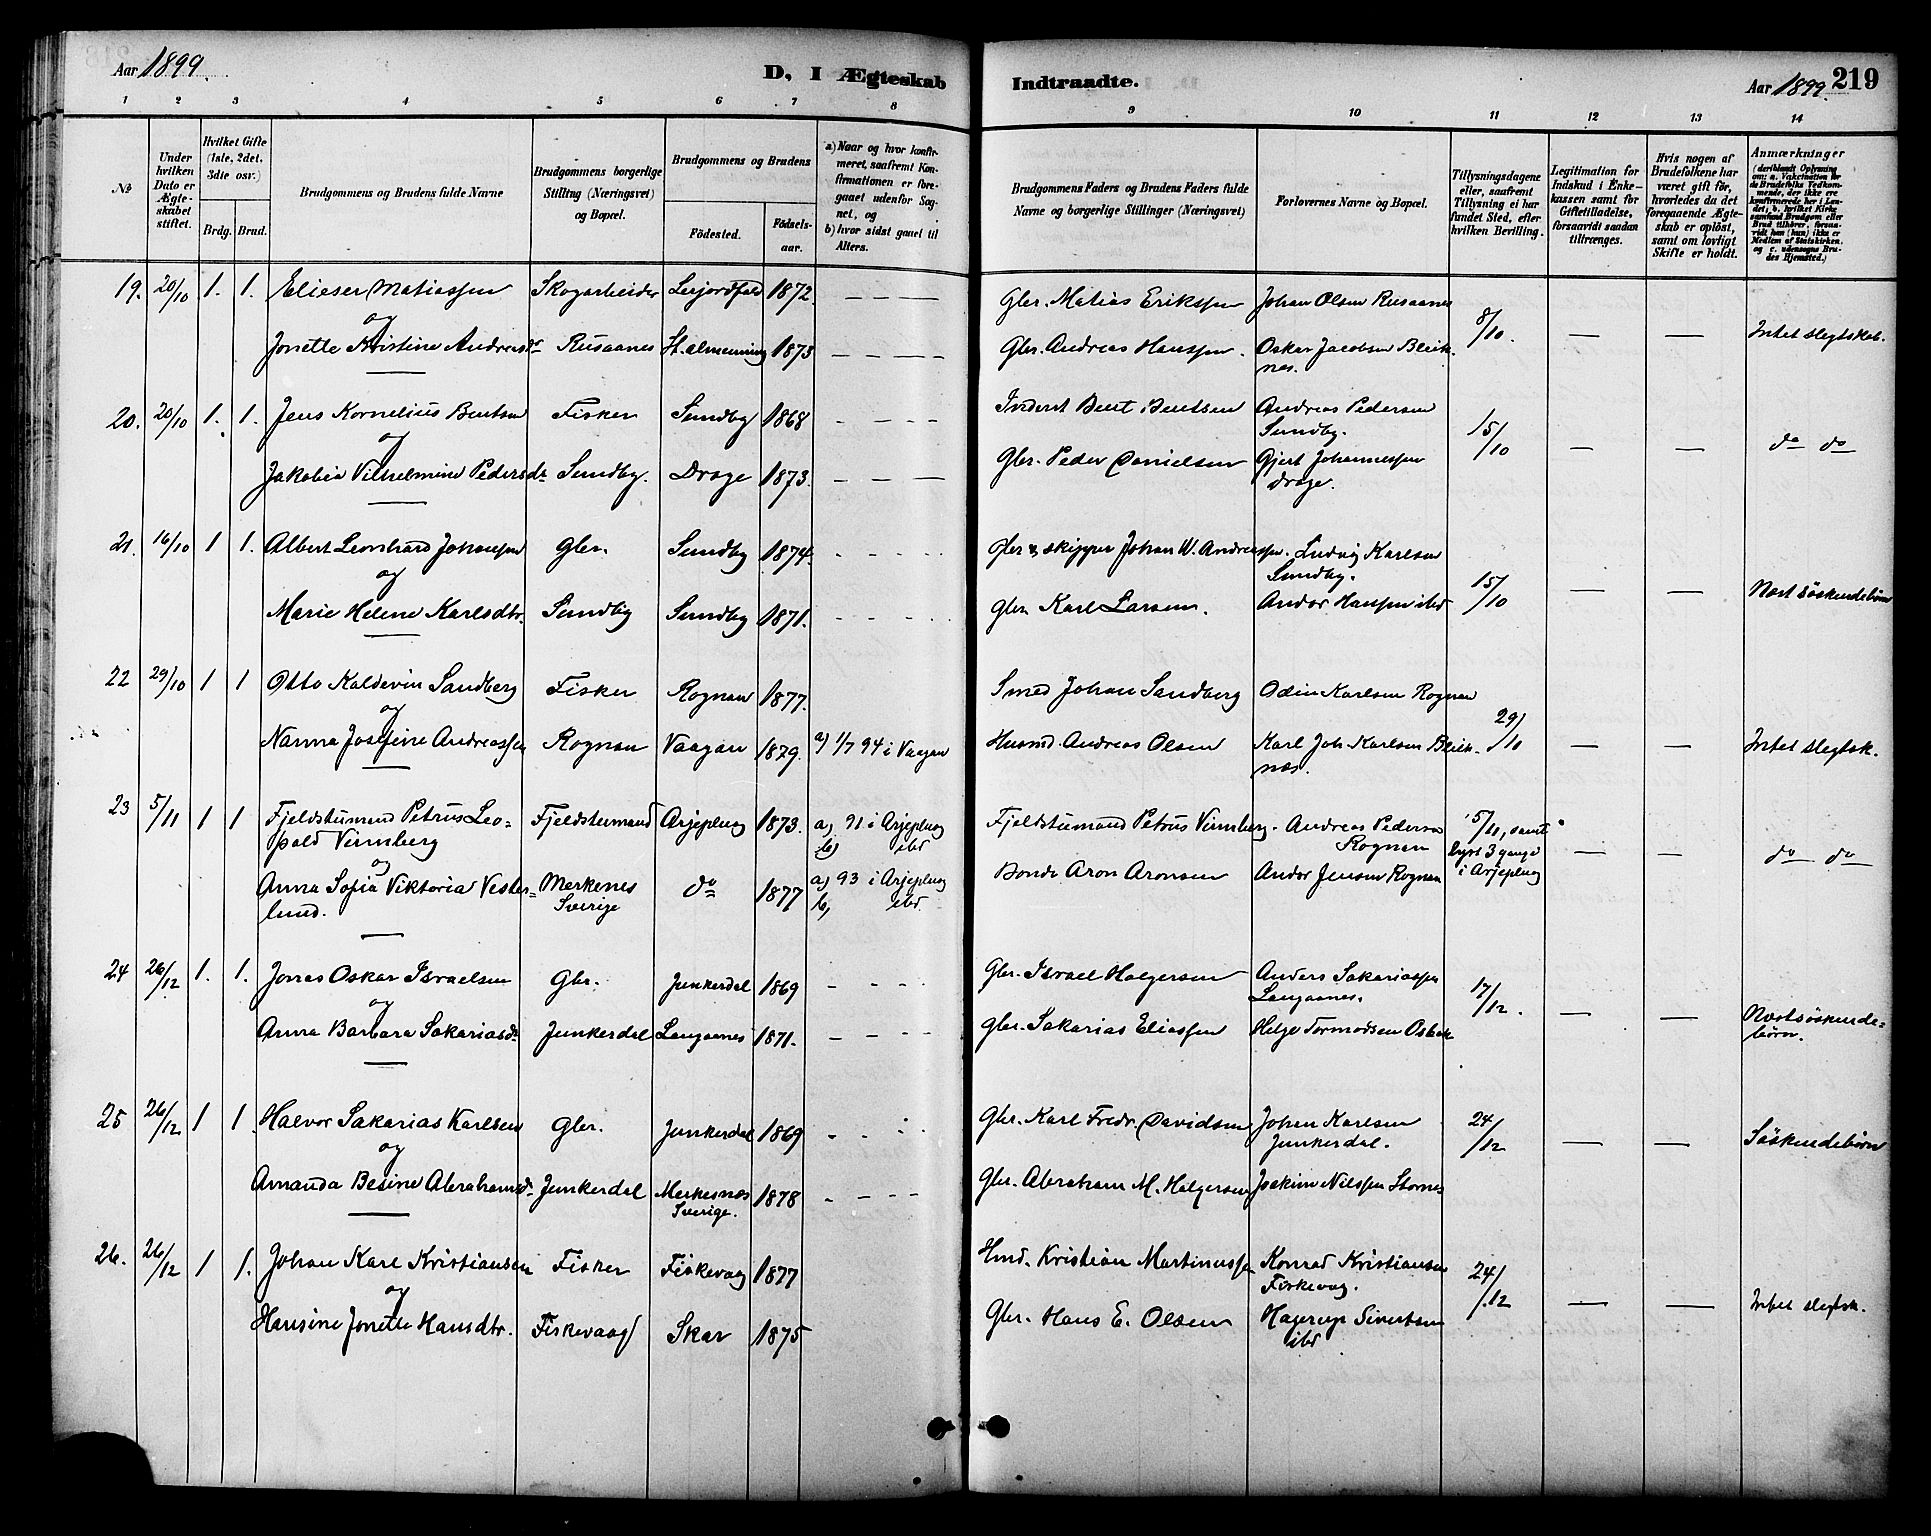 Aar 1899.
D, I Ægteskab
Indtraadte.
Aar 1899.
219
1 2 3 4 5 6 7 8 9 10 11 12 13 14
№
Under hvilken Dato er Ægteskabet stiftet.
Hvilket Gifte (1ste, 2det, 3die osv.)
Brdg. Brud.
Brudgommens og Brudens fulde Navne
Brudgommens borgerlige Stilling (Næringsvei) og Bopæl.
Brudgommens og Brudens
Födested.
Födselsaar.
a) Naar og hvor konfirmeret, saafremt Konfirmationen er foregaaet udenfor Sognet, og
b) hvor sidst gaaet til Alters.
Brudgommens Faders og Brudens Faders fulde Navne og borgerlige Stillinger (Næringsvei)
Forlovernes Navne og Bopæl.
Tillysningsdagene eller, saafremt Tillysning ei har fundet Sted, efter hvilken Bevilling.
Legitimation for Indskud i Enkekassen samt for Giftetilladelse, forsaavidt saadan tiltrænges.
Hvis nogen af Brudefolkene har været gift før, hvorledes da det foregaaende Ægteskab er oplöst, samt om lovligt Skifte er holdt.
Anmærkninger
19. 20/10 1. 1. Elieser Matiassen Skogarbeider Lerjordfald 1872. — — — Gbr. Matias Erikssen Johan Olsen Rusaanes
og 8/10. — — Intet slegtskab.
Jonette Kristine Andreasdr Rusaanes St.almenning 1873 — — — — Gbr. Andreas Hanssen. Oskar Jacobsen Bleiknes.
20. 20/10 1. 1. Jens Kornelius Bentsen Fisker Sundby 1868 — — — — Inderst Bent Bentsen Andreas Pedersen Sundby.
og 15/10 — — do do
Jakobia Vilhelmine Pedersdr Sundby. Drage 1873. — — — Gbr. Peder Danielsen Gjert Johannessen Drage.
21. 16/10 1 1. Albert Leonhard Johansen Gbr. Sundby 1874. - - - - Gbr & skipper Johan W. Andreassen. Ludvig Karlsen Sundby.
og 15/10 — — Næst söskendebörn
Marie Helene Karlsdtr. Sundby Sundby 1871. - - - - Gbr. Karl Larsen. Andor Hanssen ibd
22 29/10 1 1 Otto Kaldevin Sandberg Fisker Rognan 1877. Smed Johan Sandberg Odin Karlsen Rognan
og 29/10 — — Intet slegtsk.
Nanna Josefine Andreassen Rognan Vaagan 1879. a) 1/7 94 i Vaagan Husmd. Andreas Olsen Karl Joh. Karlsen Bleiknæs.
23 5/11 1 1 Fjeldstumand Petrus Leopold Virmberg Fjeldstumand Arjepluog 1873. a) 91 i Arjepluog b) ibd Fjeldstumand Petrus Virmberg. Andreas Pedersen Rognan
og 5/11, samt lyst 3 gange i Arjepluog — — do do
Anna Sofia Viktoria Vesterlund. Merkenes Sverige do 1877 a) 93 i Arjepluog b) ibd. Bonde Aron Aronsen Andor Jensen Rognan
24 26/12 1. 1. Jonas Oskar Israelsen Gbr. Junkerdal 1869 - - - - Gbr. Israel Holgersen Anders Sakariassen Langaanes.
og 17/12. — — Næstsöskendebörn.
Anna Barbara Sakariasdr Junkerdal Langaanes 1871. — — — — Gbr. Sakarias Eliassen Helge Tormodsen Osbak
25 26/12 1 1. Halvor Sakarias Karlsen Gbr. Junkerdal 1869 - - - - Gbr. Karl Fredr. Davidsen Johan Karlsen Junkerdal.
og 24/12 — — Söskendebörn
Amanda Besine Abrahamsdr. Junkerdal Merkesnæs Sverige. 1878 - - - - Gbr. Abraham M. Holgersen Joakim Nilssen Stornes
26. 26/12 1 1. Johan Karl Kristiansen Fisker Fiskevaag 1877 Hmd. Kristian Martinussen Konrad Kristiansen Fiskevag.
og 24/12 — — Intet slegtsk.
Hansine Jonette Hansdtr. Fiskevaag Skar 1875 Gbr. Hans E. Olsen Hagerup Sivertsen ibd